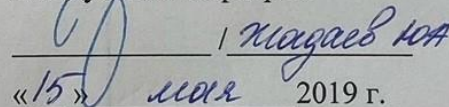 / Жадаев ЮА
«15» мая 2019 г.